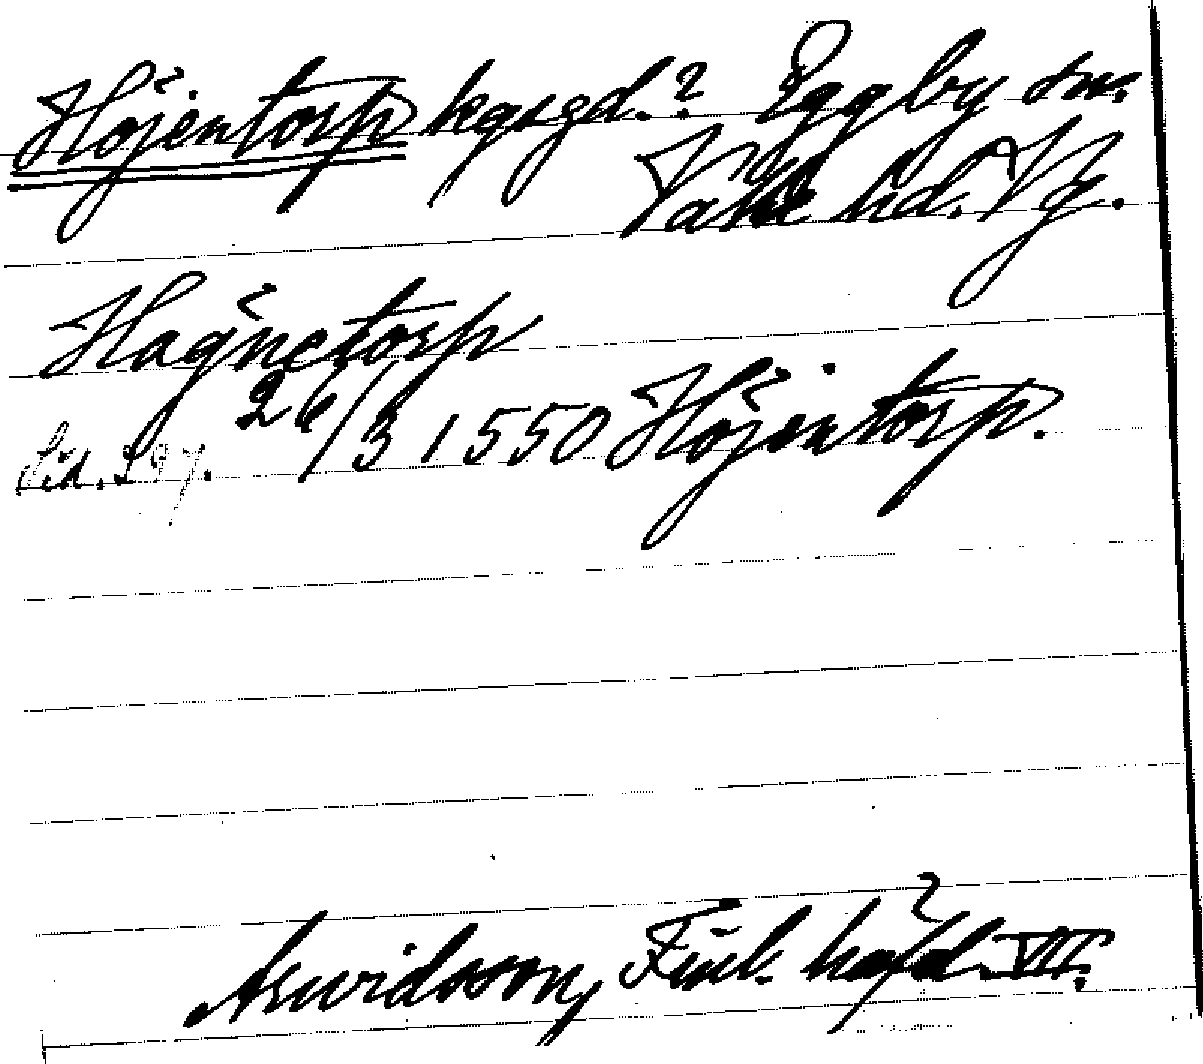 Höjentorp kgsgd.? Eggby sn.
Valle hd. Vg.
Hagnetorp
26/3 1550 Höjentorp.
Sid. 297.
Arwidsson, Finl. häfd. VII.